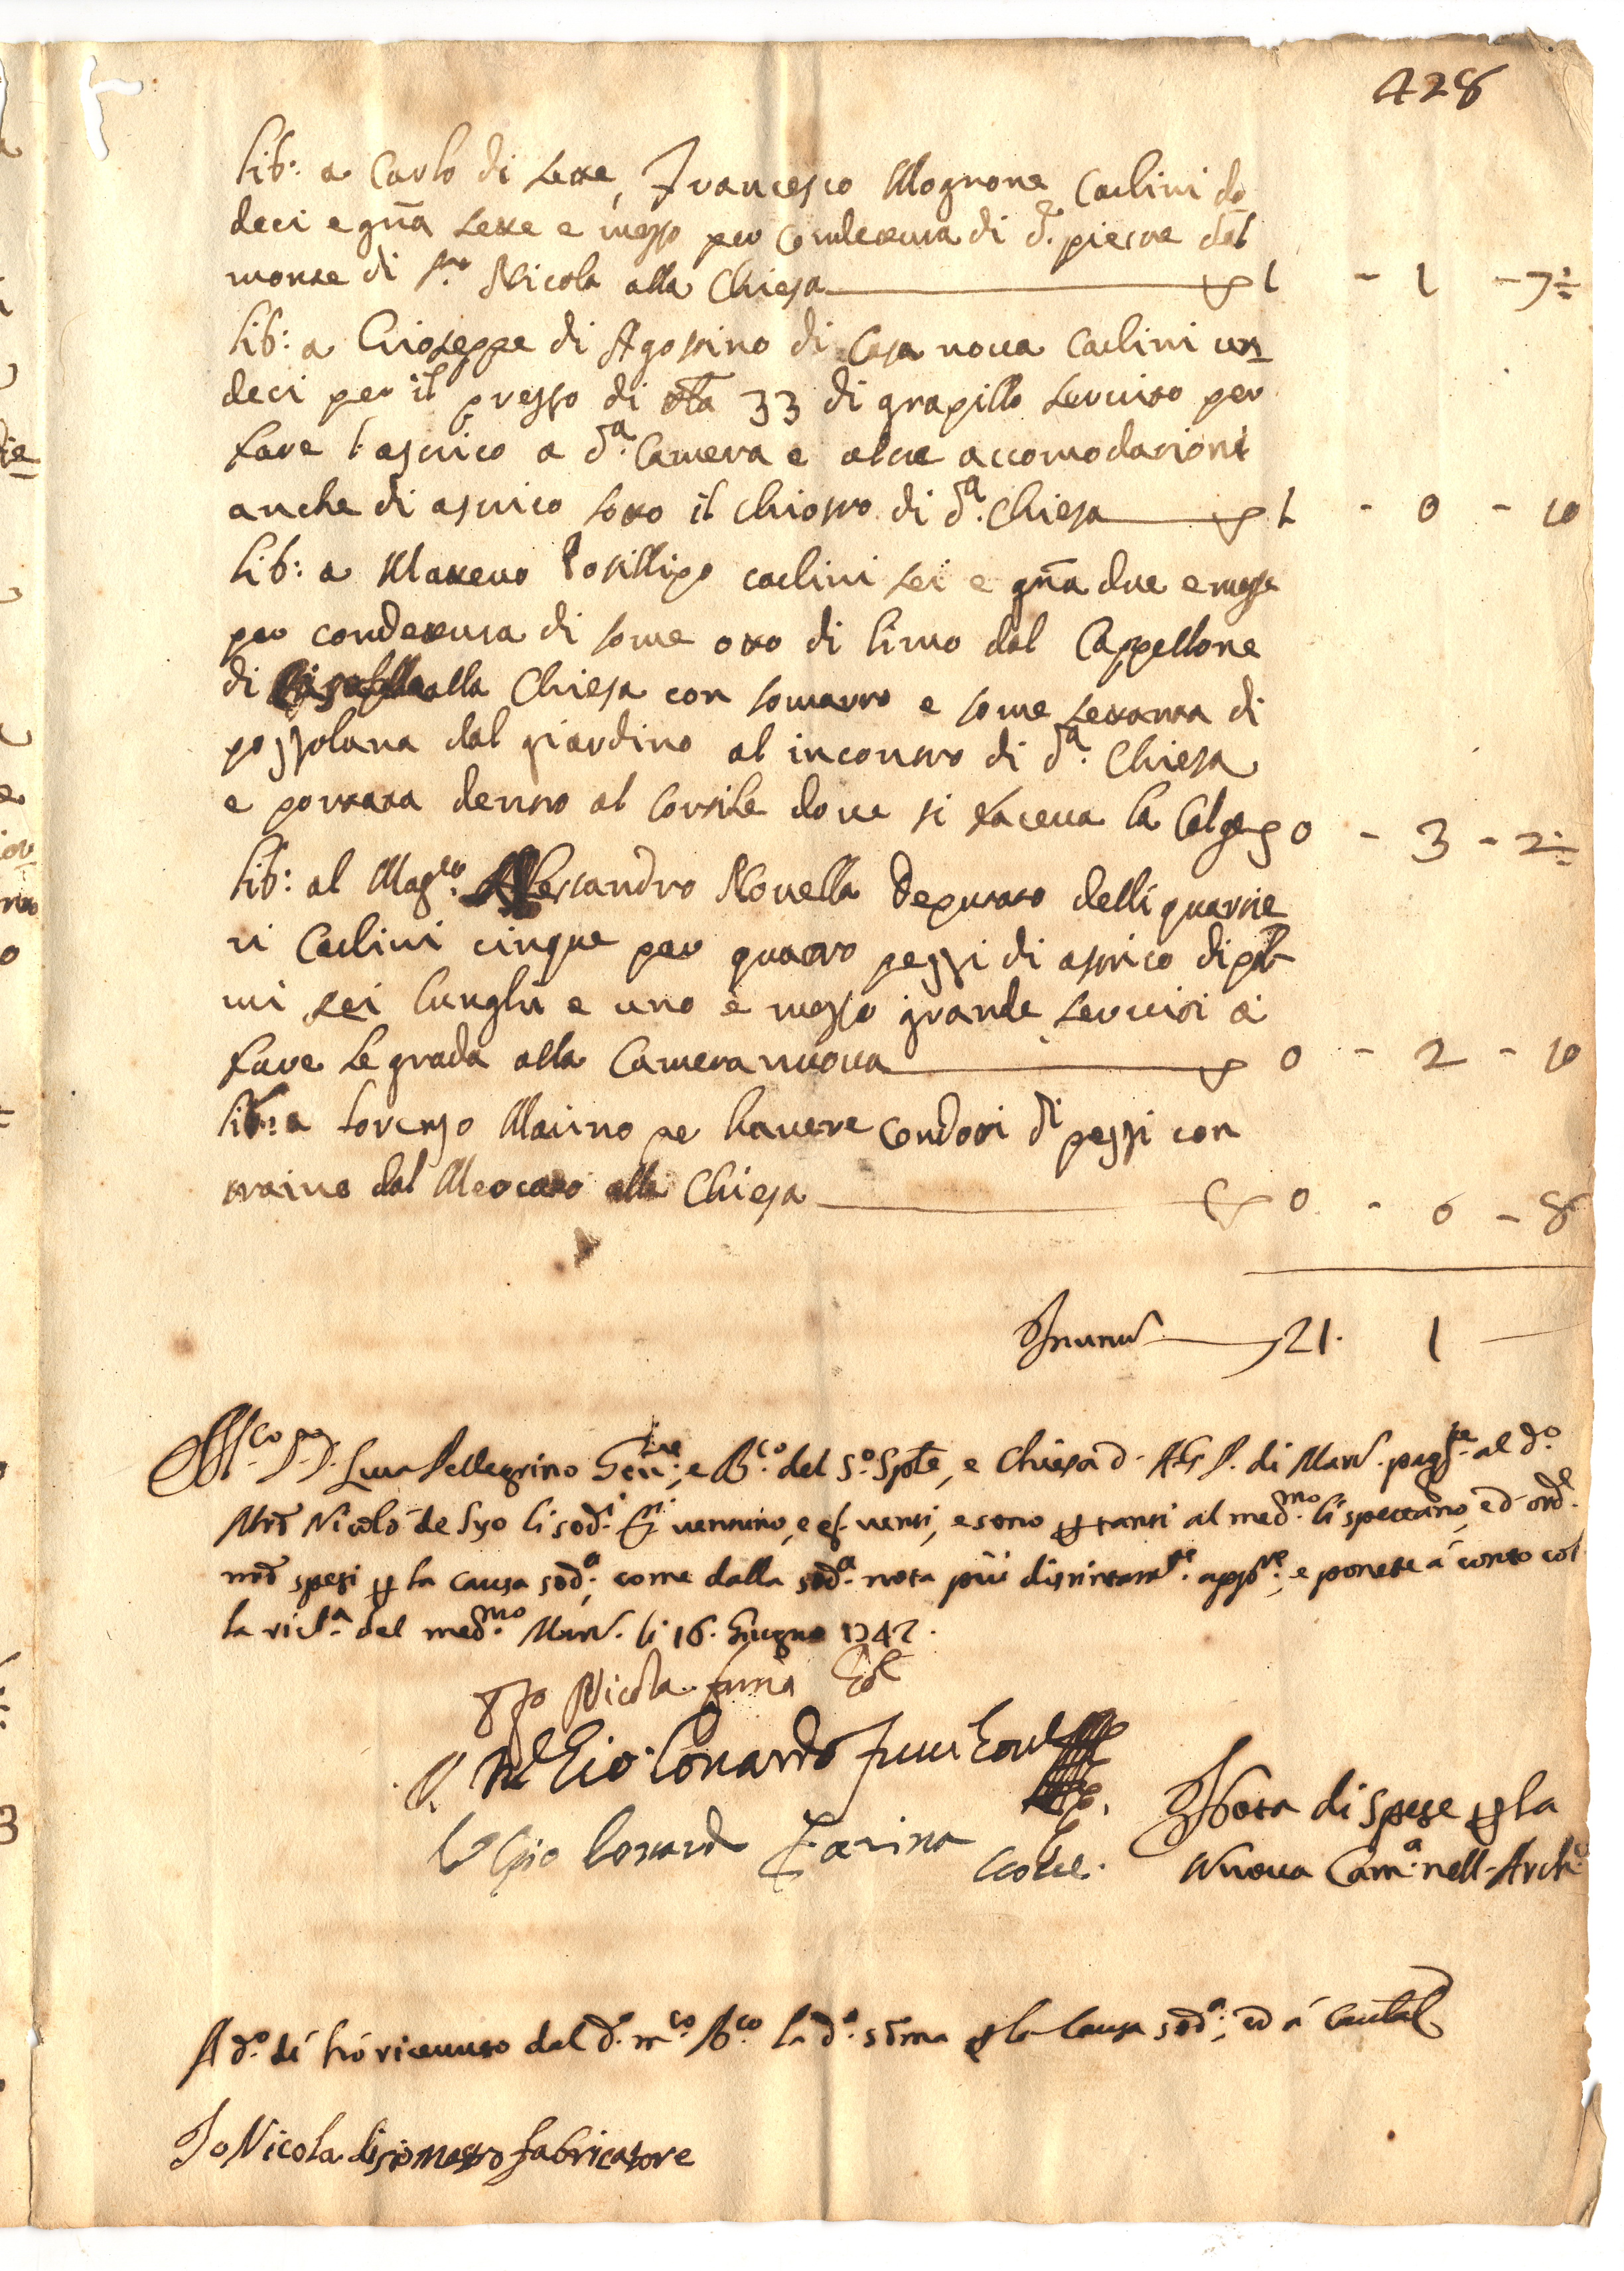 428
lib: a Carlo di Lette, Francesco Mognone Carlini do
deci e grña sette e mezzo per condettura di d.e pietre dal
monte di S.to Nicola alla Chiesa 1 - 1 - 7½
lib: a Gioseppe di Agostino di Casa noua Carlini un
deci per il prezzo di 33 di grapillo seruito per
fare l'astrico a d.a Camera e altre accomodationi
anche di astrico sotto il chiostro di d.a Chiesa 1 - 0 - 10
lib: a Matteuo Posillipo carlini sei e grña due e mezzo
per condettura di some otto di limo dal Cappellone
di alla Chiesa con somarro e some settanta di
pozzolana dal giardino al incontro di d.a Chiesa
e portata dentro al cortile doue si faceua la Calge 0 - 3 - 2½
lib: al Mag.co Alessandro Nouella Deputato delli quartie
ri Carlini cinque per quatro pezzi di astrico di pal
mi sei lunghi e uno e mezzo grande seruiti à
fare le grada alla Camera nuoua 0 - 2 - 10
lib: a Lorenzo Maiino pe hauere condotti di pezzi con
traino dal Mercato alla Chiesa 0 - 0 - 8
21. 1
Luca Pellegrino e B.co del S.o Spte, e Chiesa d. A.G.P. di Mar. pag.te al d.o
Mro Nicolò de Syo li sod.i ventuno, e gr. venti, e sono p tanti al med.mo li spettano, ed ord.e
nro spesi p la causa sod.a, come dalla sod.a nota più distintam.te app.re, e ponete à conto col
la ric.ta del med.mo Mar. li 16. Giugno 1742.
Nicola furia
Gio: Lonardo
Gio Lonardo Farina
Nota di spese p la
Nuoua Cam.a nell-Arch.o
A d.o dì hò riceuuto dal d.o m.co B.co la d.a soma p la causa sod.a, ed à cautel
Io Nicola disio mastro fabricatore